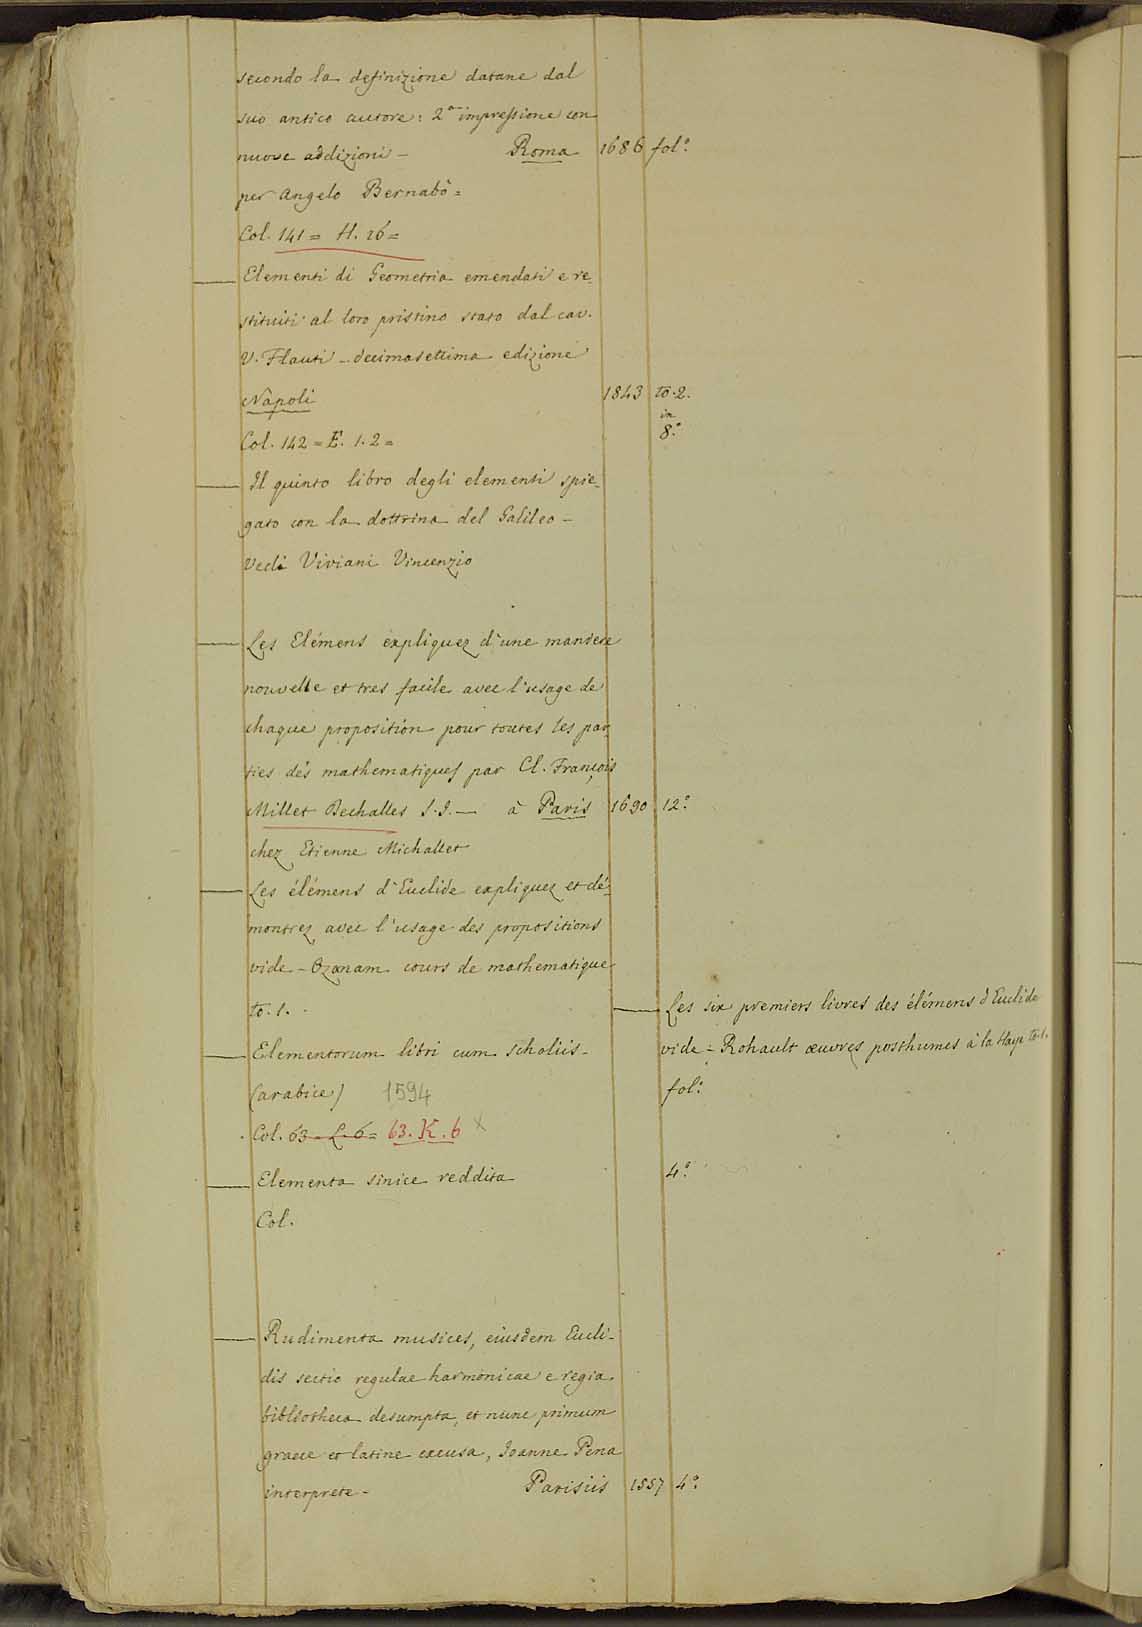 secondo la definizione datane dal
suo antico autore: 2ª impressione con
nuove addizioni — Roma 1686 fol.º
per Angelo Bernabò =
Col. 141 = H. 26 =
— Elementi di Geometria emendati e re-
stituiti al loro pristino stato dal cav.
V. Flauti - decimasettima edizione
Napoli 1843 to. 2.
in
8.º
Col. 142 = E. 1. 2 =
— Il quinto libro degli elementi spie-
gato con la dottrina del Galileo -
Vedi Viviani Vincenzio
— Les Elémens expliquez d'une maniere
nouvelle et tres facile avec l'usage de
chaque proposition pour toutes les par-
ties des mathematiques par Cl. François
Millet Dechalles S.I. — à Paris 1690 12.º
chez Etienne Michallet
— Les élémens d'Euclide expliquez et dé-
montrez avec l'usage des propositions
vide - Ozanam cours de mathematique
to. 1.
— Les six premiers livres des élémens d'Euclide
vide = Rohault œuvres posthumes à la Haye to. 1.
— Elementorum libri cum scholiis -
(arabice) 1594 fol.º
Col. 63 = L. 6 = 63. K. 6 x
— Elementa sinice reddita 4.º
Col.
— Rudimenta musices, eiusdem Eucli-
dis sectio regulae harmonicae e regia
bibliotheca desumpta, et nunc primum
graece et latine excusa, Joanne Pena
interprete - Parisiis 1557 4.º